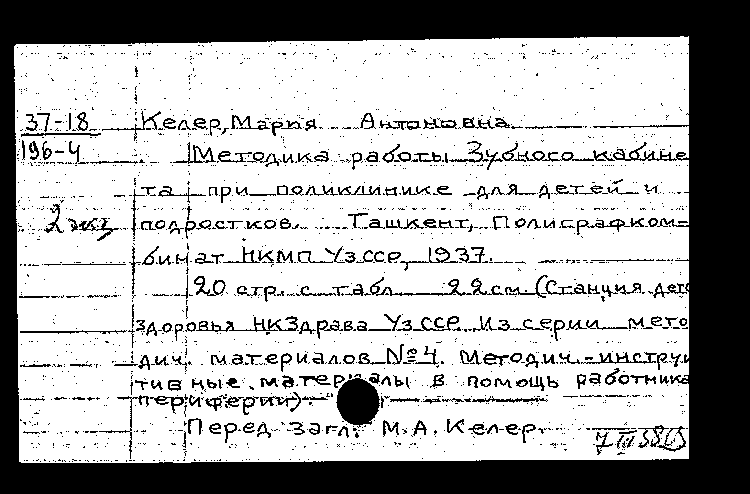 37-18
196-4
2 экз
Келер, Мария Антоновна
Методика работы Зубного кабине
та при поликлинике для детей и
подростков. Ташкент, Полиграфком-
бинат НКМП УзССР, 1937.
20 стр. с табл 22 см. (Станция дет
здоровья НКЗдрава УзССР Из серии мето
дич. материалов №4. Методич.-инструк
тивные материалы в помощь работника
периферии).
Перед загл. М.А. Келер.